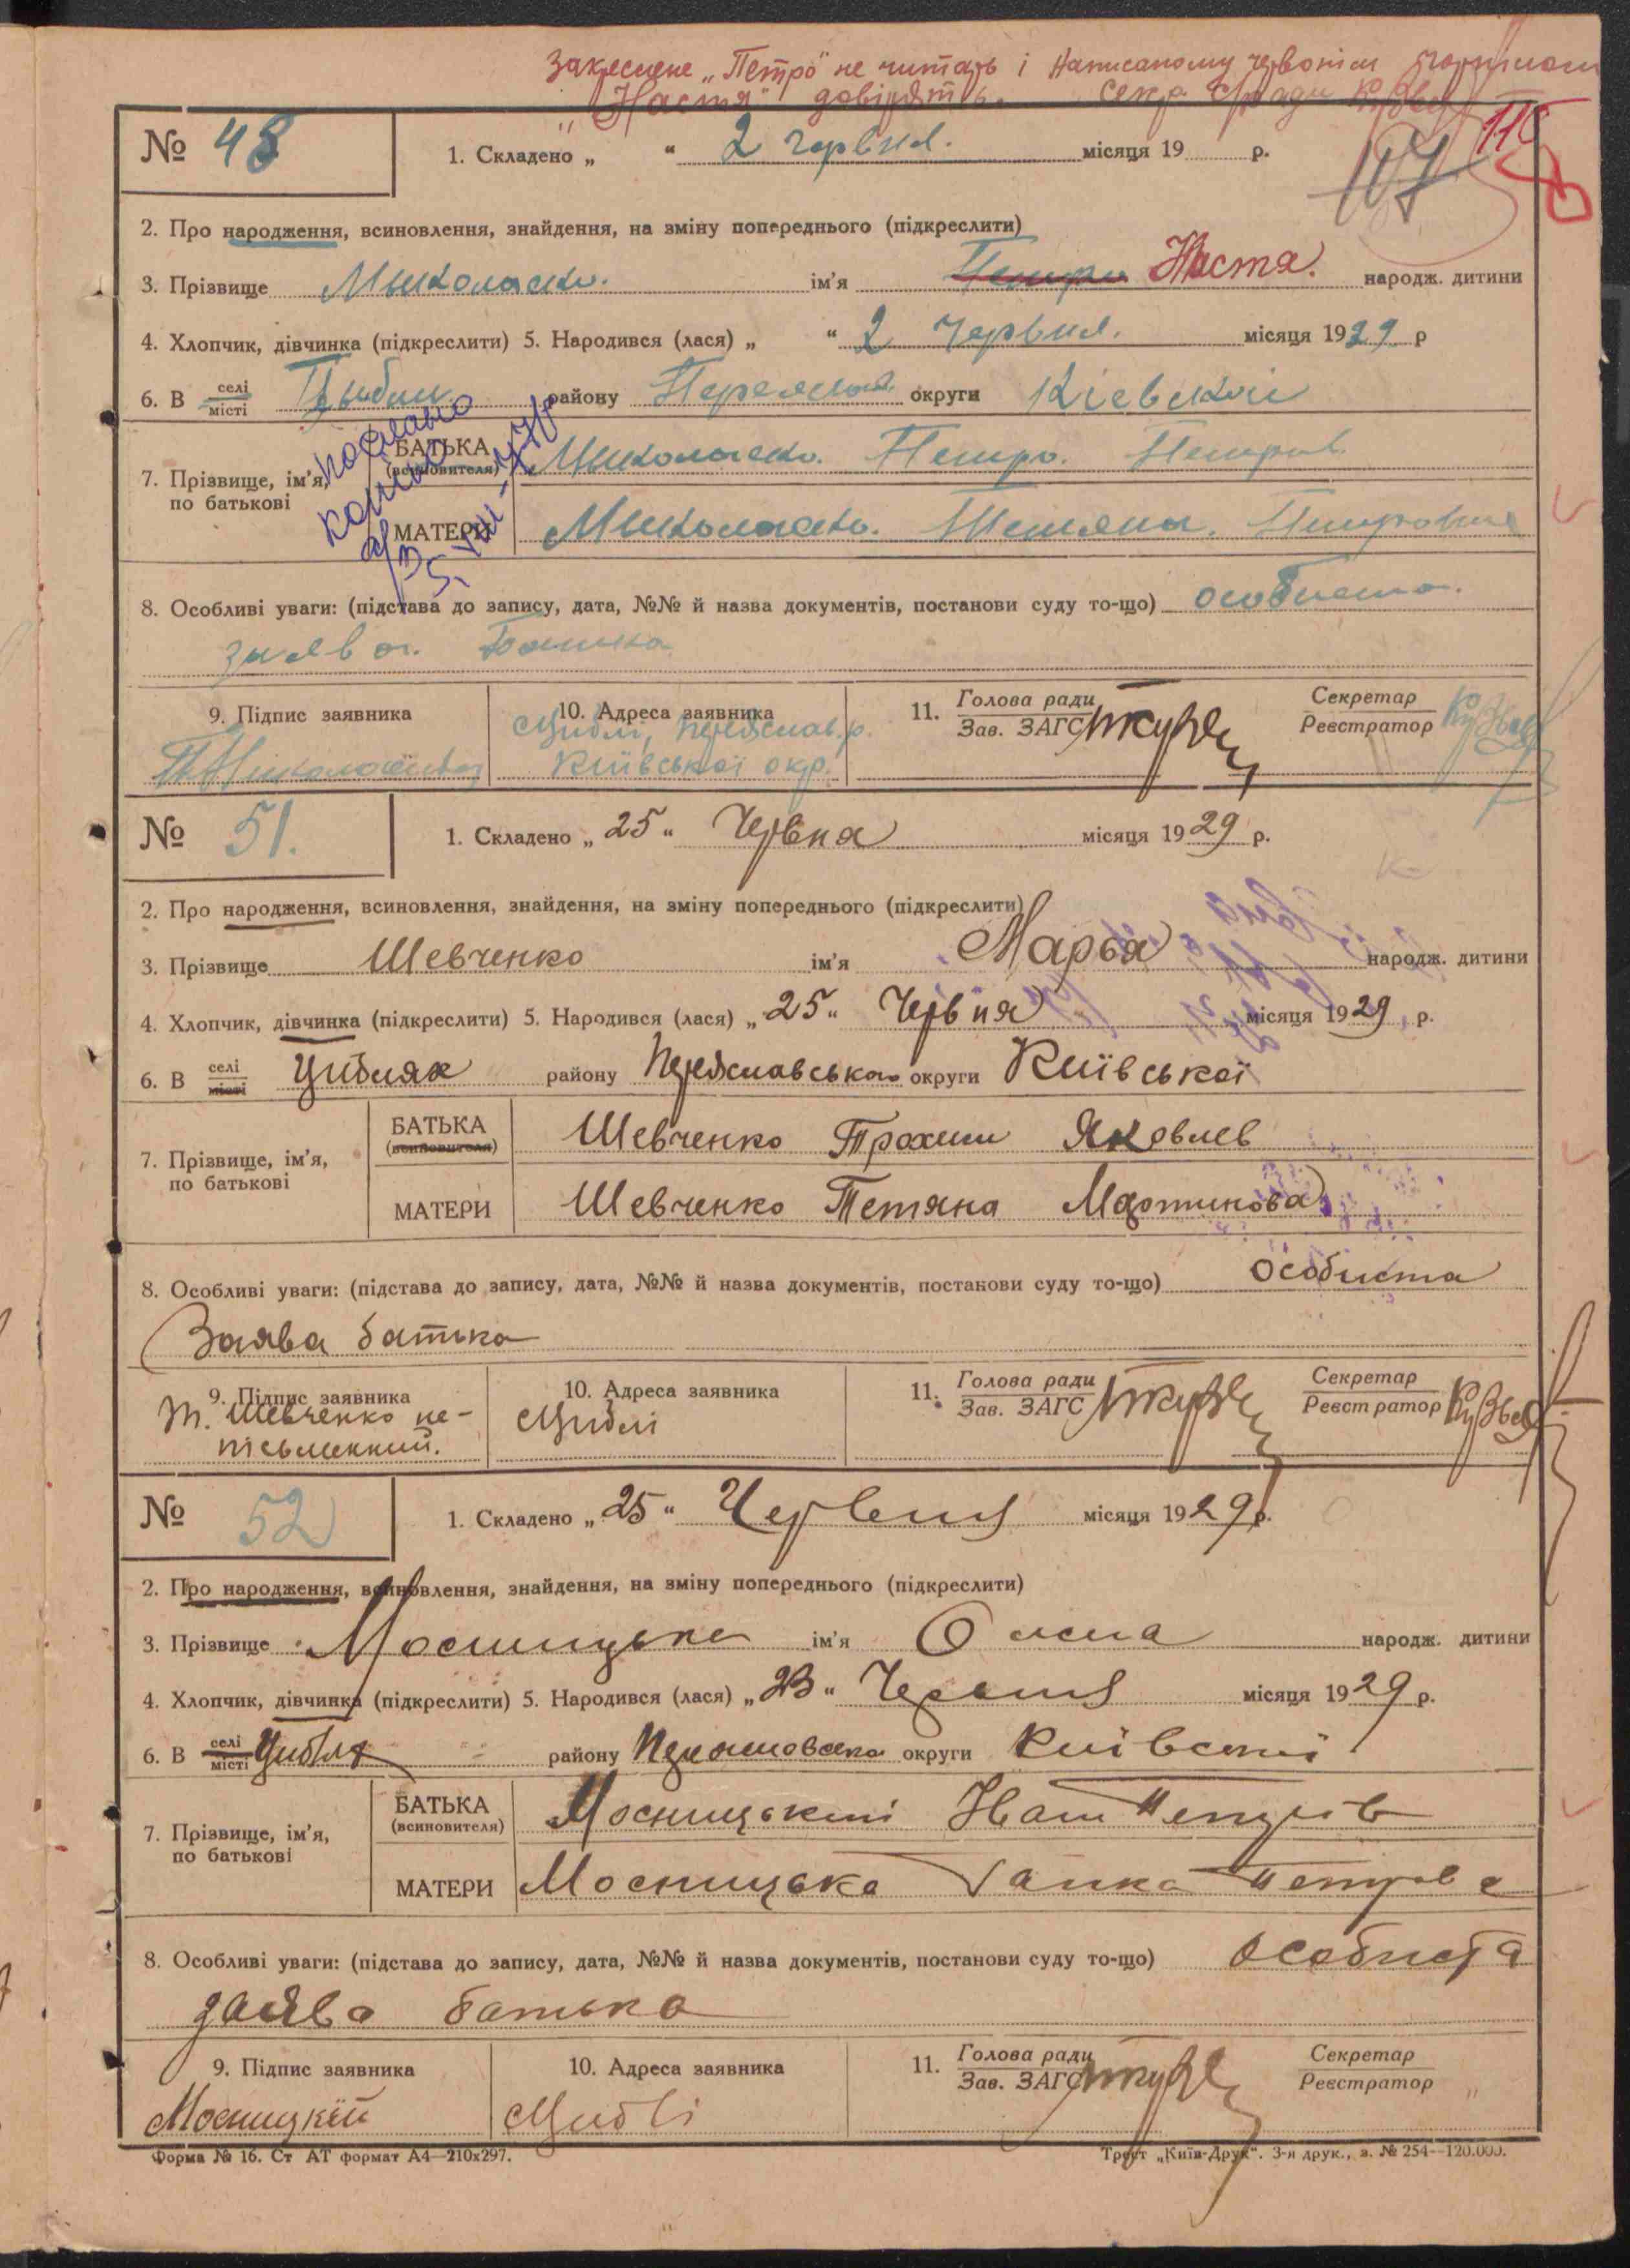 Закреслене „Петро" не читать і написаному червонім чорнилом
„Настя" довірять. Секр. с/ради
№ 48
107
1. Складено „ “ 2 червня. місяця 19 р.
2. Про народження, всиновлення, знайдення, на зміну попереднього (підкреслити)
3. Прізвище Миколаєнко. ім'я Петро Настя. народж. дитини
4. Хлопчик, дівчинка (підкреслити) 5. Народився (лася) „ “ 2 Червня. місяця 1929 р
6. В селі місті району округи Кіевской
послано копію
7. Прізвище, ім'я, по батькові
БАТЬКА (всиновителя) Миколаєнко. Петро. Петров
МАТЕРИ Миколаєнко. Тетяна. Петровна
8. Особливі уваги: (підстава до запису, дата, №№ й назва документів, постанови суду то-що) особиста.
заява. Батька
9. Підпис заявника
10. Адреса заявника
Циблі, Переяслав. р.
Київської окр.
11. Голова ради Зав. ЗАГС
Секретар Реєстратор
№ 51.
1. Складено „ 25 “ Червня місяця 1929 р.
2. Про народження, всиновлення, знайдення, на зміну попереднього (підкреслити)
3. Прізвище Шевченко ім'я Марья народж. дитини
4. Хлопчик, дівчинка (підкреслити) 5. Народився (лася) „ 25 “ Червня місяця 1929 р.
6. В селі місті Циблях району Переяславсько округи Київської
7. Прізвище, ім'я, по батькові
БАТЬКА (всиновителя) Шевченко Трохим Яковлев
МАТЕРИ Шевченко Тетяна Мартинова
8. Особливі уваги: (підстава до запису, дата, №№ й назва документів, постанови суду то-що) особиста
Заява батька
9. Підпис заявника
Т. Шевченко не-
письменний.
10. Адреса заявника
Циблі
11. Голова ради Зав. ЗАГС
Секретар Реєстратор
№ 52
1. Складено „ 25 “ Червня місяця 1929 р.
2. Про народження, всиновлення, знайдення, на зміну попереднього (підкреслити)
3. Прізвище Мосницька ім'я народж. дитини
4. Хлопчик, дівчинка (підкреслити) 5. Народився (лася) „ 23 “ Червня місяця 1929 р.
6. В селі місті Цибля району округи Київської
7. Прізвище, ім'я, по батькові
БАТЬКА (всиновителя) Мосницький Петрів
МАТЕРИ Мосницька Ганка Петрова
8. Особливі уваги: (підстава до запису, дата, №№ й назва документів, постанови суду то-що) особиста
заява батька
9. Підпис заявника
Мосницкій
10. Адреса заявника
Циблі
11. Голова ради Зав. ЗАГС
Секретар Реєстратор „
Форма № 16. Ст АТ формат А4—210х297.
Трест „Київ-Друк“. 3-я друк., з. № 254—120.000.